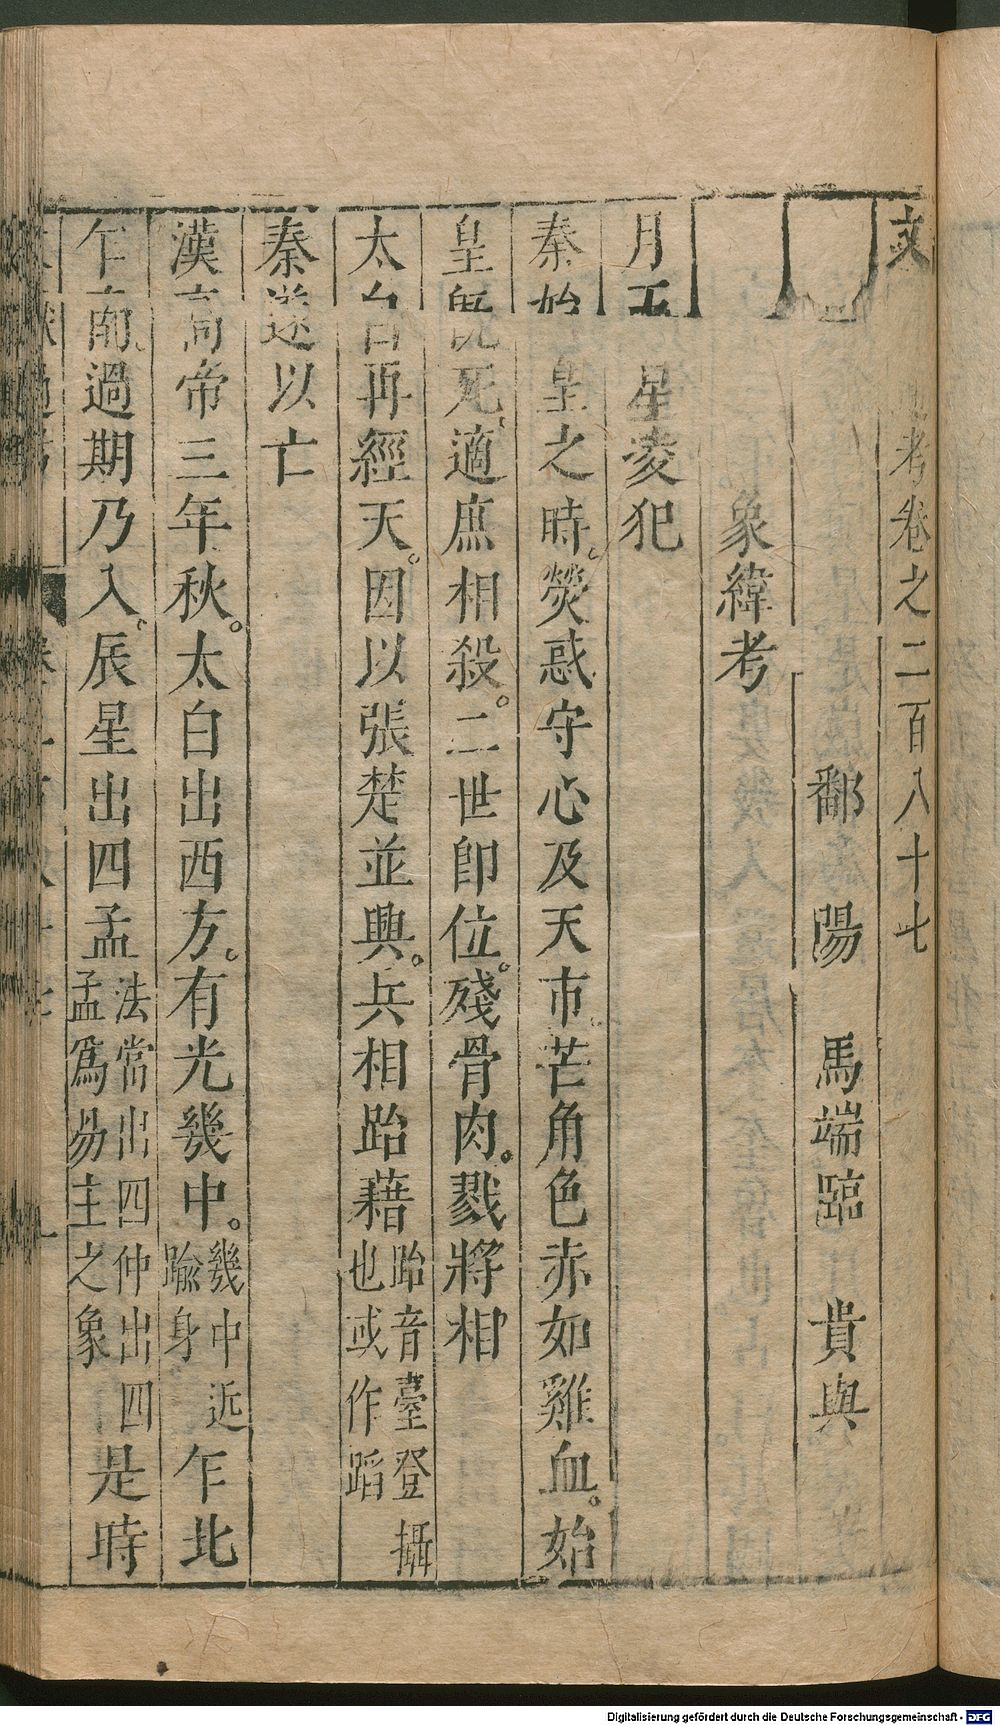 文考卷之二百八十七
鄱陽馬端臨貴與
象緯考
月五星凌犯
秦始皇之時。熒惑守心及天市。芒角色赤如雞血。始
皇旣死、適庶相殺。二世卽位。殘骨肉。戮將相
太白再經天。因以張楚並興。兵相跆藉跆音臺登攝也或作蹈
秦遂以亡
漢高帝三年秋。太白出西方。有光幾中。幾中近踰身乍北
乍南、過期乃入、辰星出四孟法常出四仲出四孟爲易主之象是時
Digitalisierung gefördert durch die Deutsche Forschungsgemeinschaft - DFG